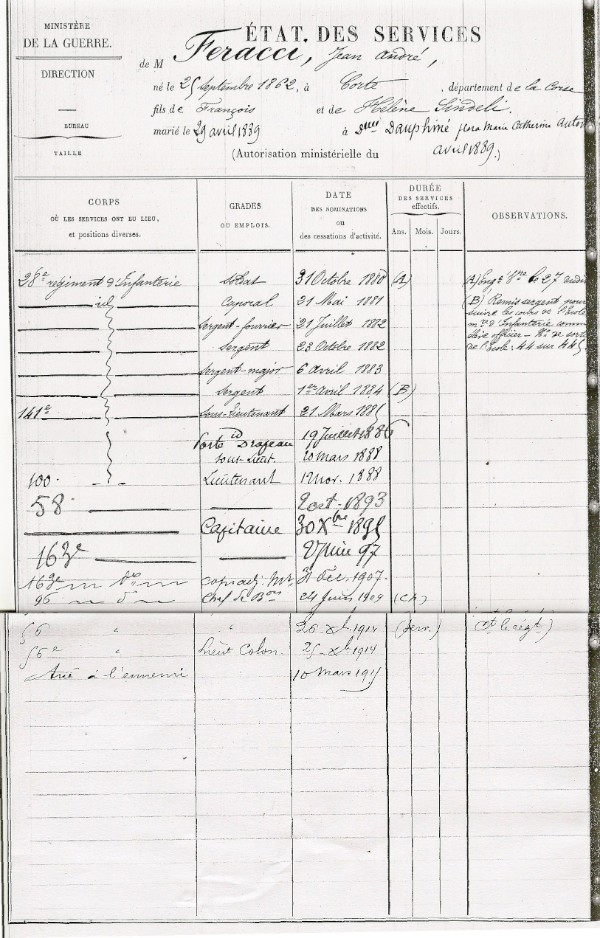 MINISTÈRE
DE LA GUERRE.
DIRECTION
BUREAU
TAILLE
ÉTAT DES SERVICES
de M Feracci, Jean André,
né le 25 Septembre 1862, à Corte, département de la Corse
fils de François et de Hélène
marié le 29 avril 1889 à Dauphiné Marie Catherine
(Autorisation ministérielle du avril 1889.)
CORPS
OÙ LES SERVICES ONT EU LIEU,
et positions diverses.
GRADES
OU EMPLOIS.
DATE
DES NOMINATIONS
ou
des cessations d'activité.
DURÉE
DES SERVICES
effectifs.
Ans. Mois. Jours.
OBSERVATIONS.
régiment d'Infanterie Soldat 31 Octobre 1880 (A) (A) Engé Vre le 27 dudit
id Caporal 21 Mai 1881 (B) Remis sergent pour
Sergent-fourrier 21 Juillet 1882 suivre les cours de l'Ecole
Sergent 23 Octobre 1882 d'Infanterie comme
Sergent major 6 avril 1883 élève officier - No de sortie
Sergent 1er avril 1884 (B) de l'Ecole: 44 sur
141e Sous-Lieutenant 21 Mars 1885
id
Porte Drapeau 19 Juillet 1886
sous-Lieut. 10 mars 1888
100. Lieutenant 12 nov. 1888
58. 1893
Capitaine 30 Xbre 1895
163e 97
163e Cap. adj. Mr 31 Déc. 1907.
96 Chef de Bon 24 Juin 1909
56 " " 26 Xb 1914
56e " Lieut Colon. 25 Xb 1914
Tué à l'ennemi 10 Mars 1915